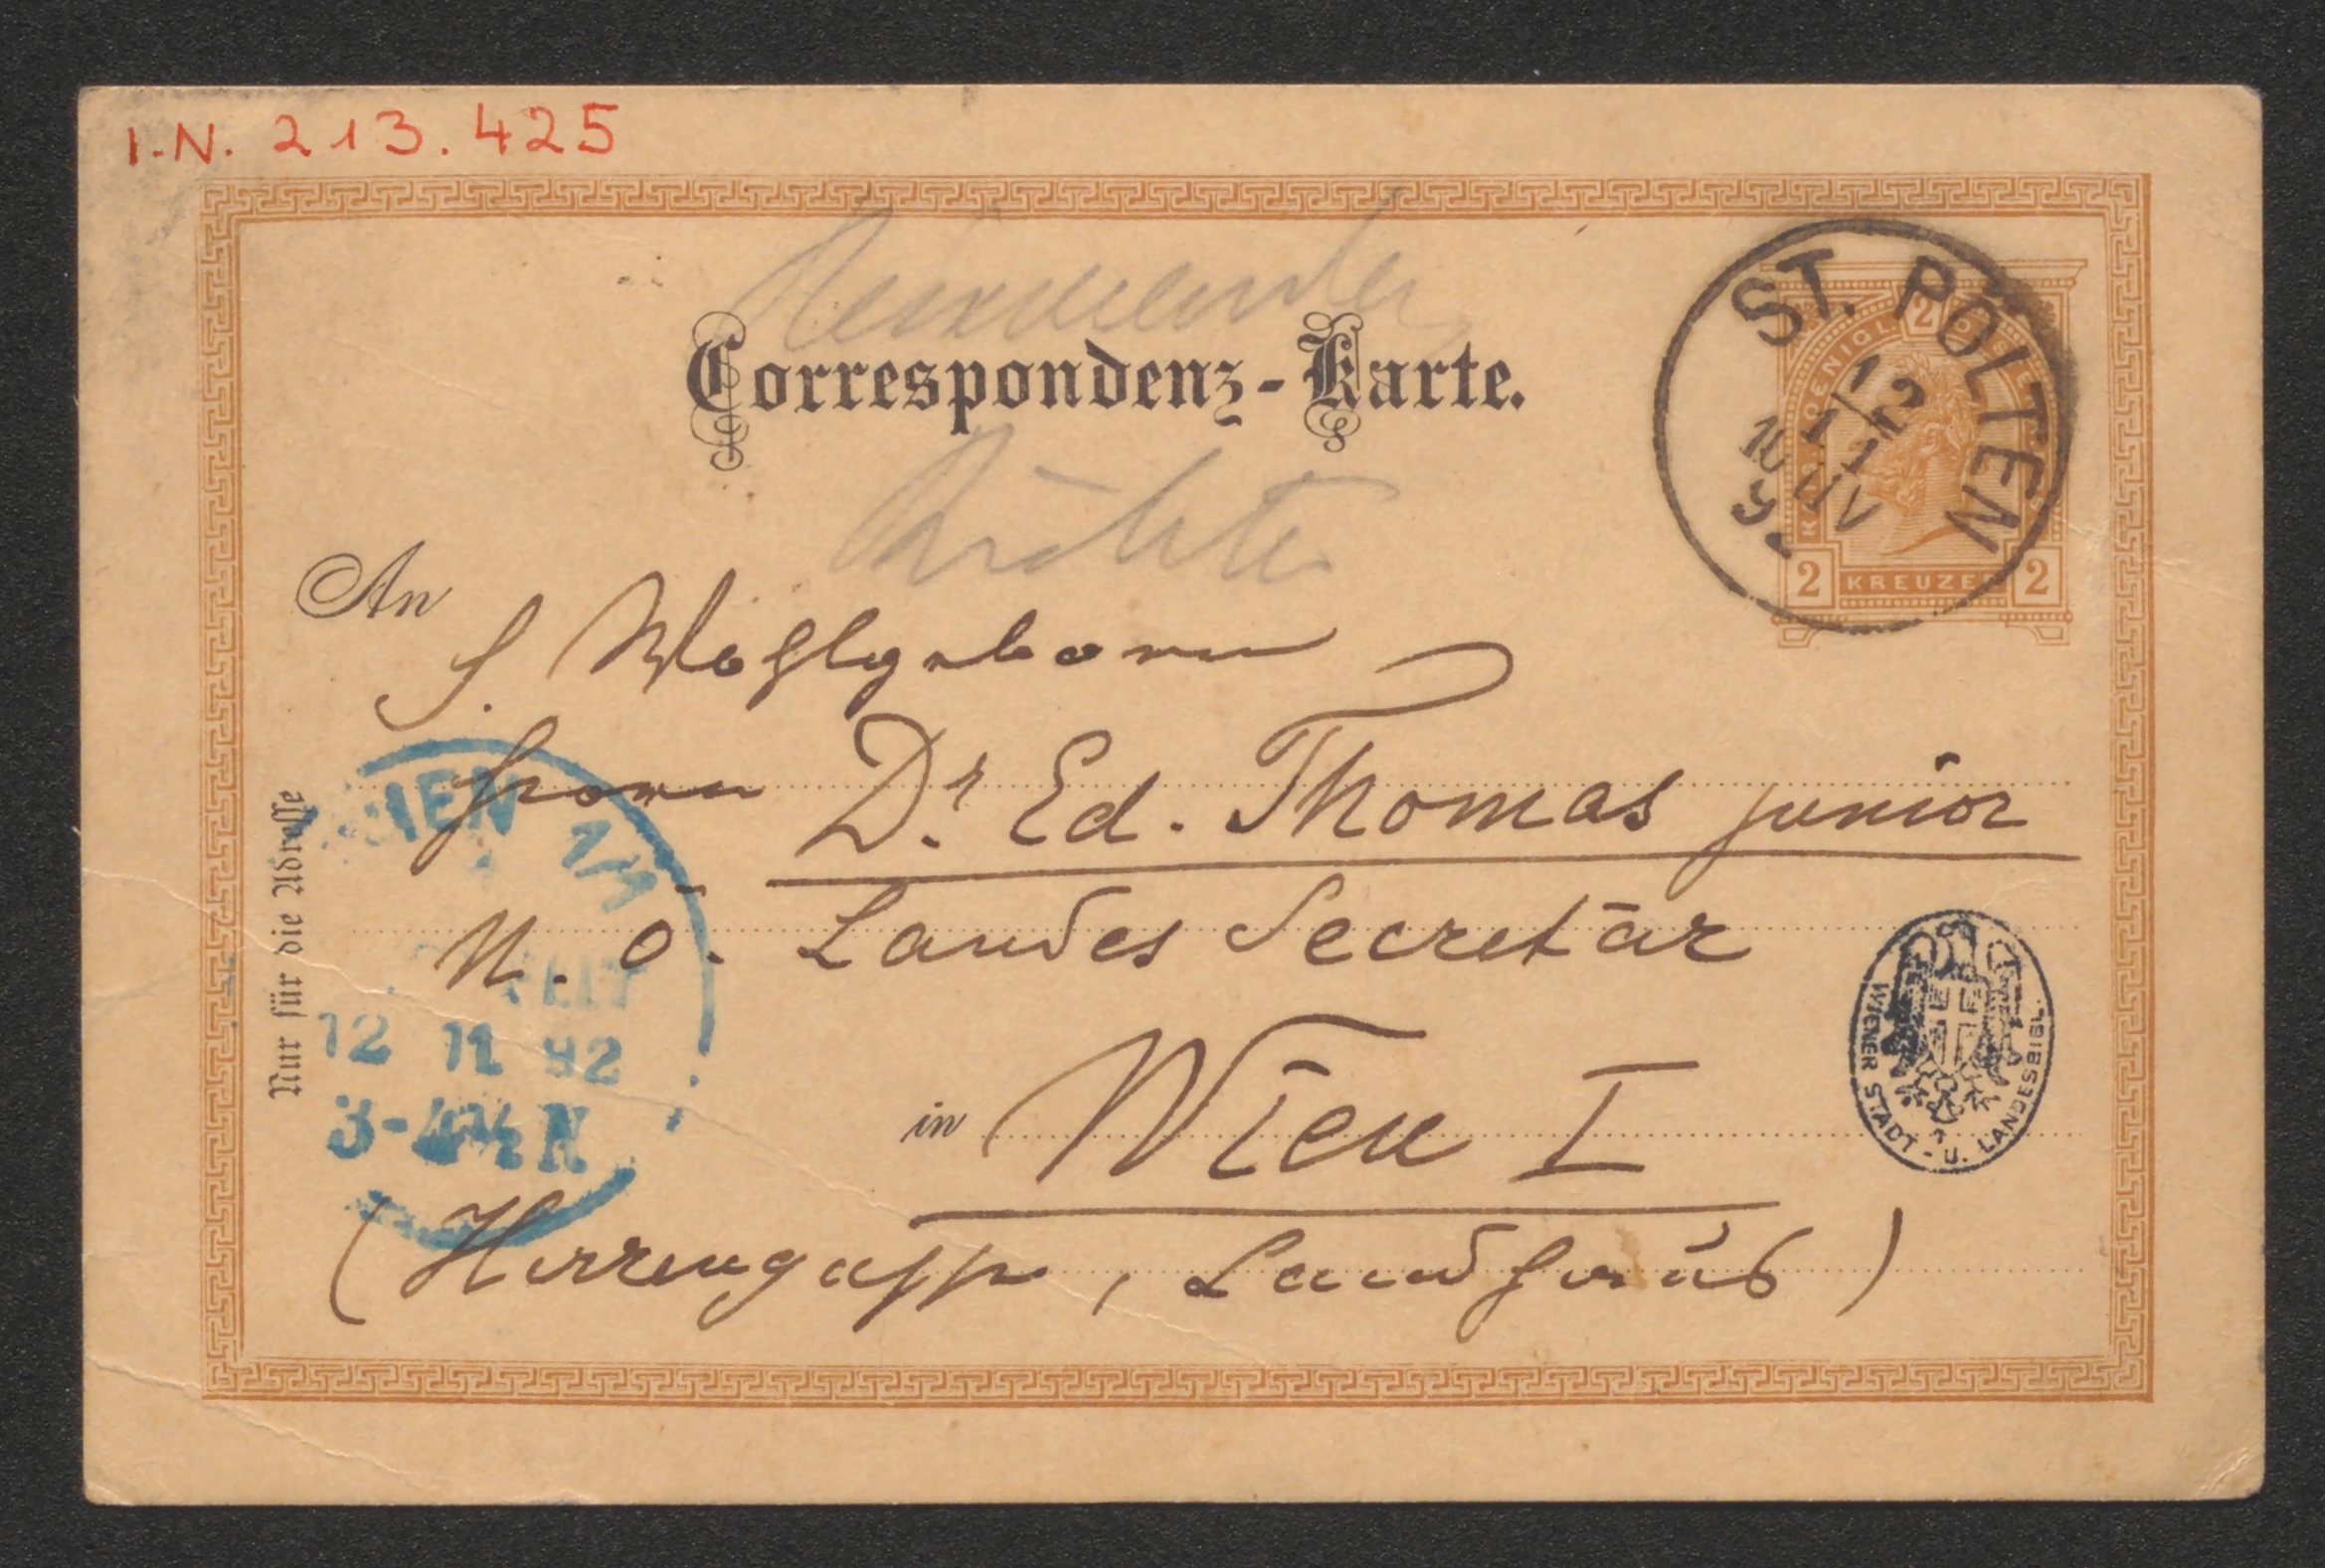 I.N. 213.425
Correspondenz-Karte.
ST. PÖLTEN
12
11
10 UV
92
2
2 KREUZER 2
An
S. Wohlgeboren
Herrn Dr. Ed. Thomas junior
N. ö. Landes Secretär
in Wien I
(Herrengasse, Landhaus)
Nur für die Adresse
WIEN 1/1
12 11 92
3-4½ N
WIENER STADT- U. LANDESBIBL.